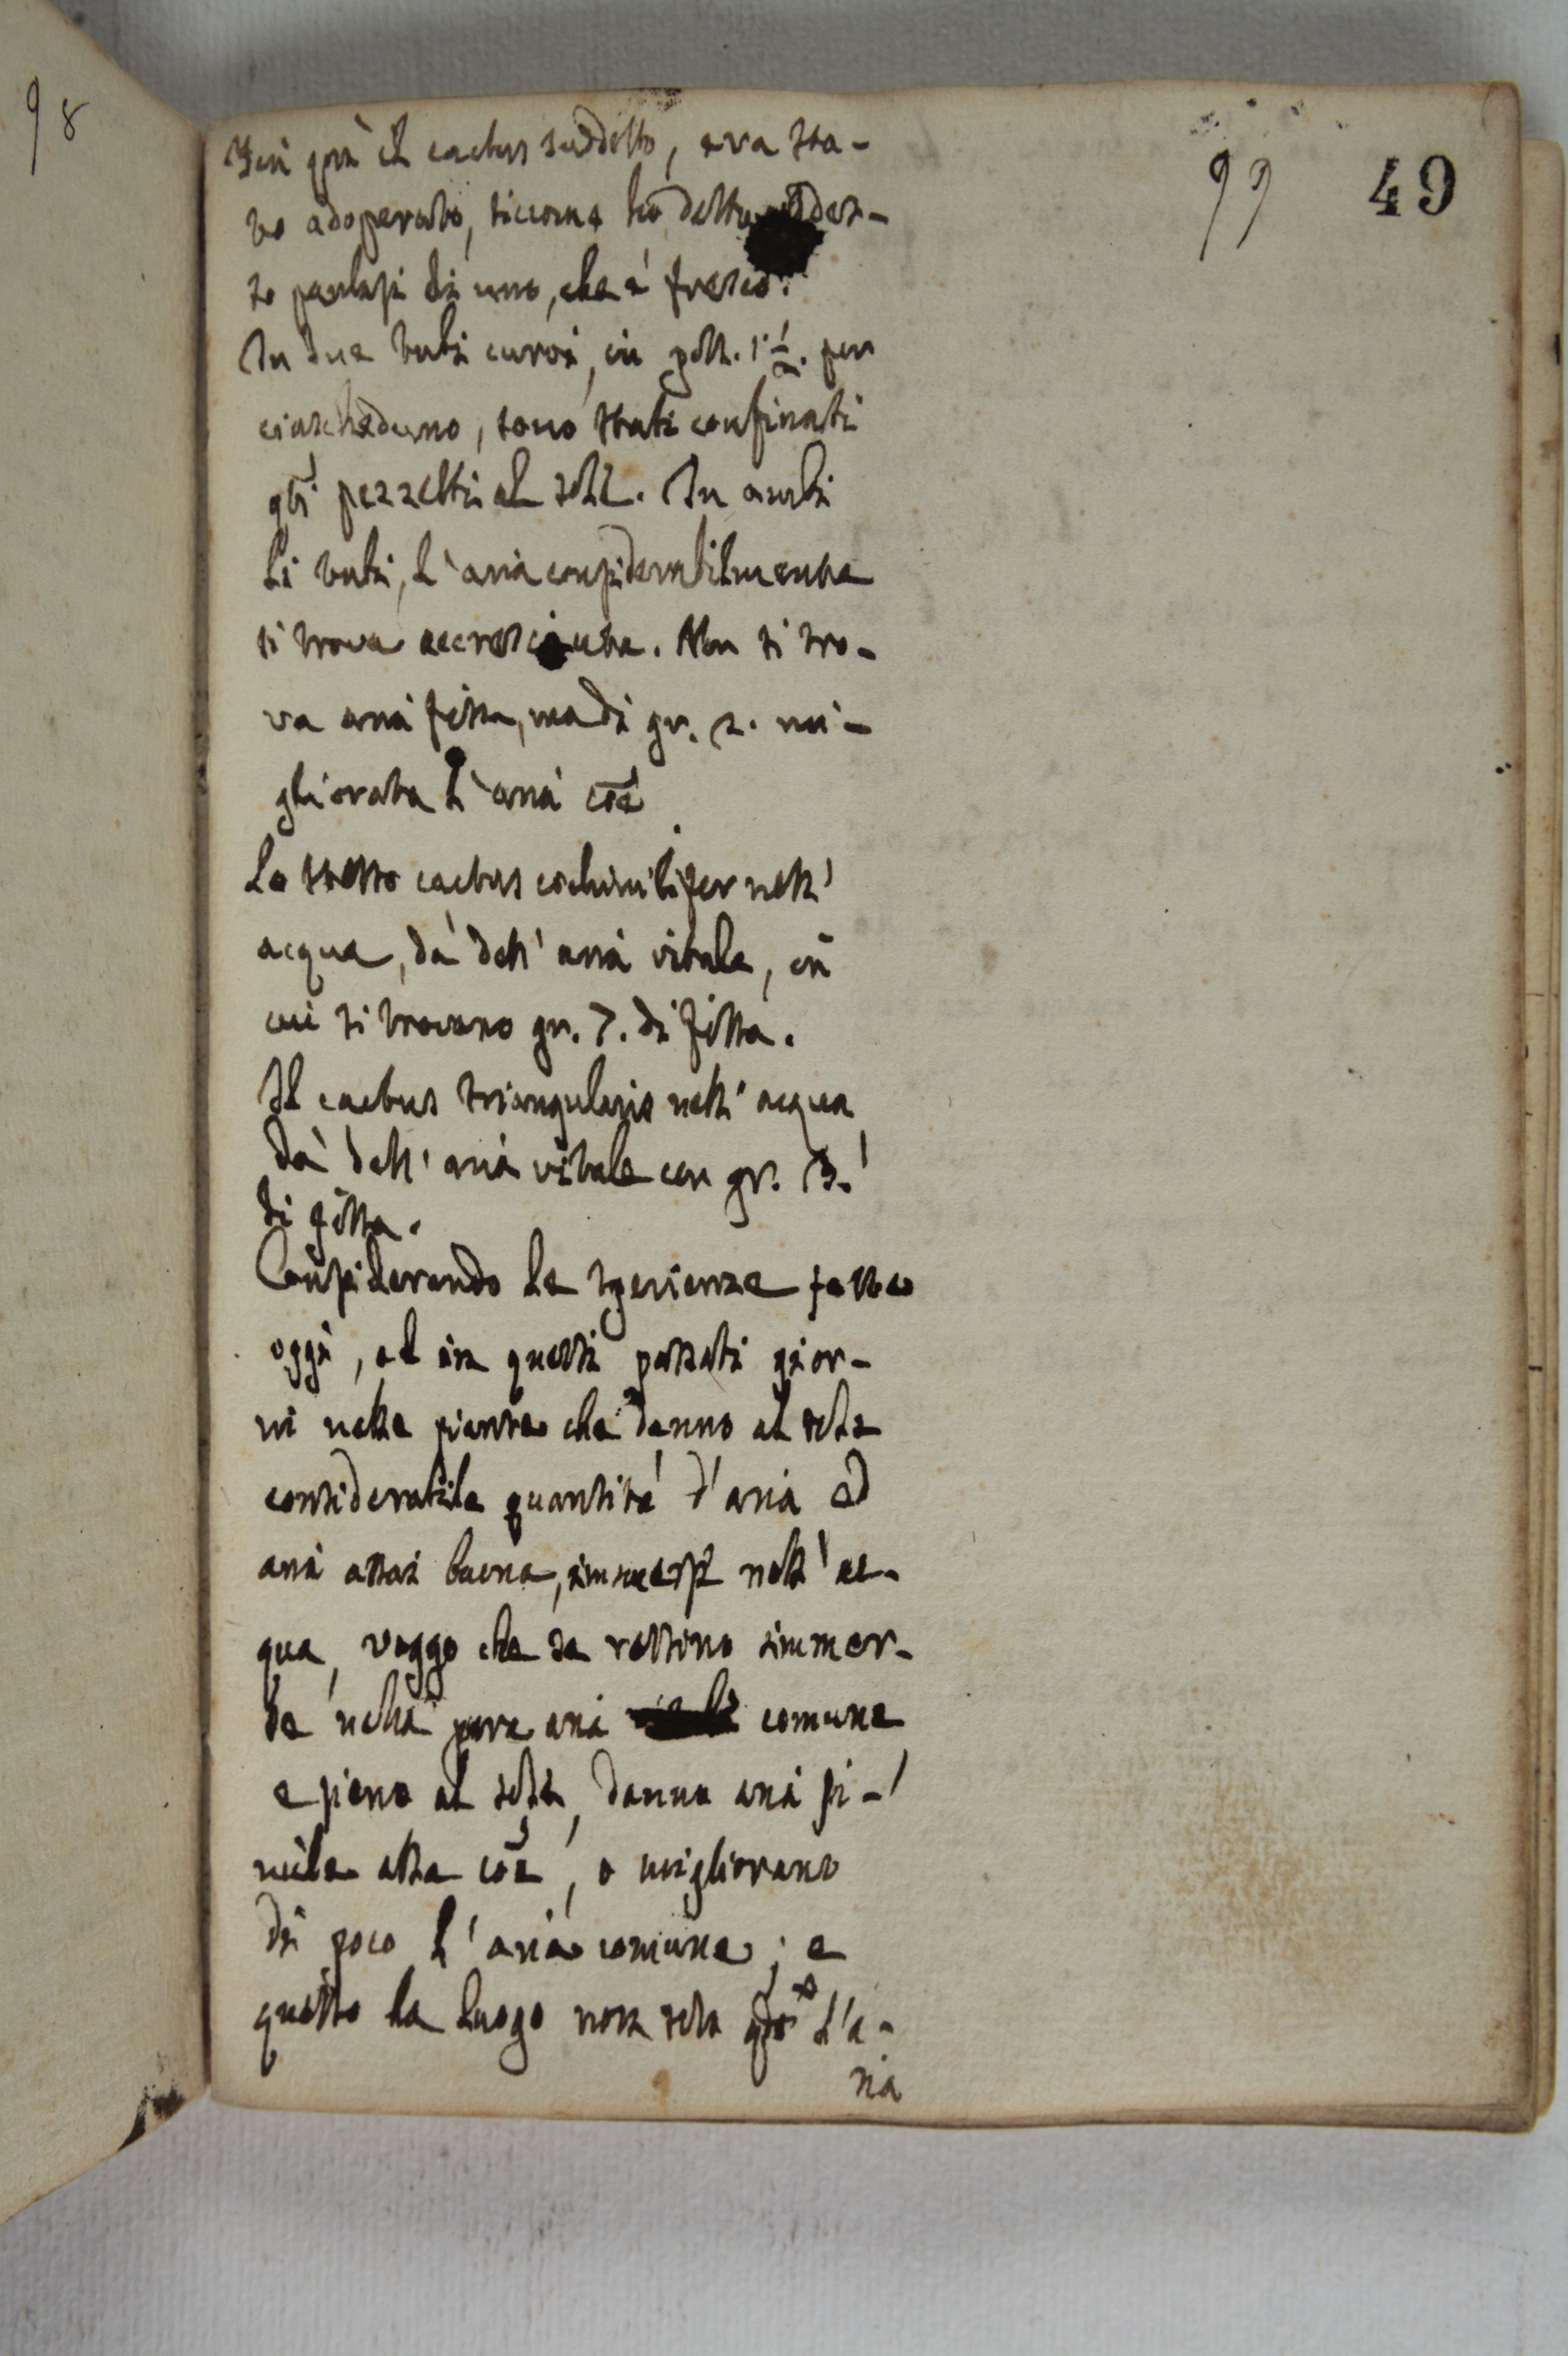 98
99 49
Jeri però il cactus suddetto, era sta-
to adoperato, siccome ho detto ades-
so parlasi di uno, che è fresco.
In due tubi curvi, in poll. 1 1/2. per
ciascheduno, sono stati confinati
qti pezzetti al sole. In ambi
li tubi, l'aria considerabilmente
si trova accresciuta. Non si tro-
va aria fissa, ma di gr. 2. mi-
gliorata l'aria coe
Lo stesso cactus cochinilifer nell'
acqua, dà dell'aria vitale, in
cui si trovano gr. 7. di fissa.
Il cactus triangularis nell'acqua
dà dell'aria vitale con gr. 3.
di fissa.
Considerando le sperienze fatte
oggi, ed in questi passati gior-
ni nelle piante che danno al sole
considerabile quantità d'aria ed
aria assai buona, immerse nell'ac-
qua, veggo che se restino immer-
se nella pura aria comune
e piena al sole, danno aria si-
mile alla coe, o migliorano
di poco l'aria comune; e
questo ha luogo non solo qdo l'a-
ria